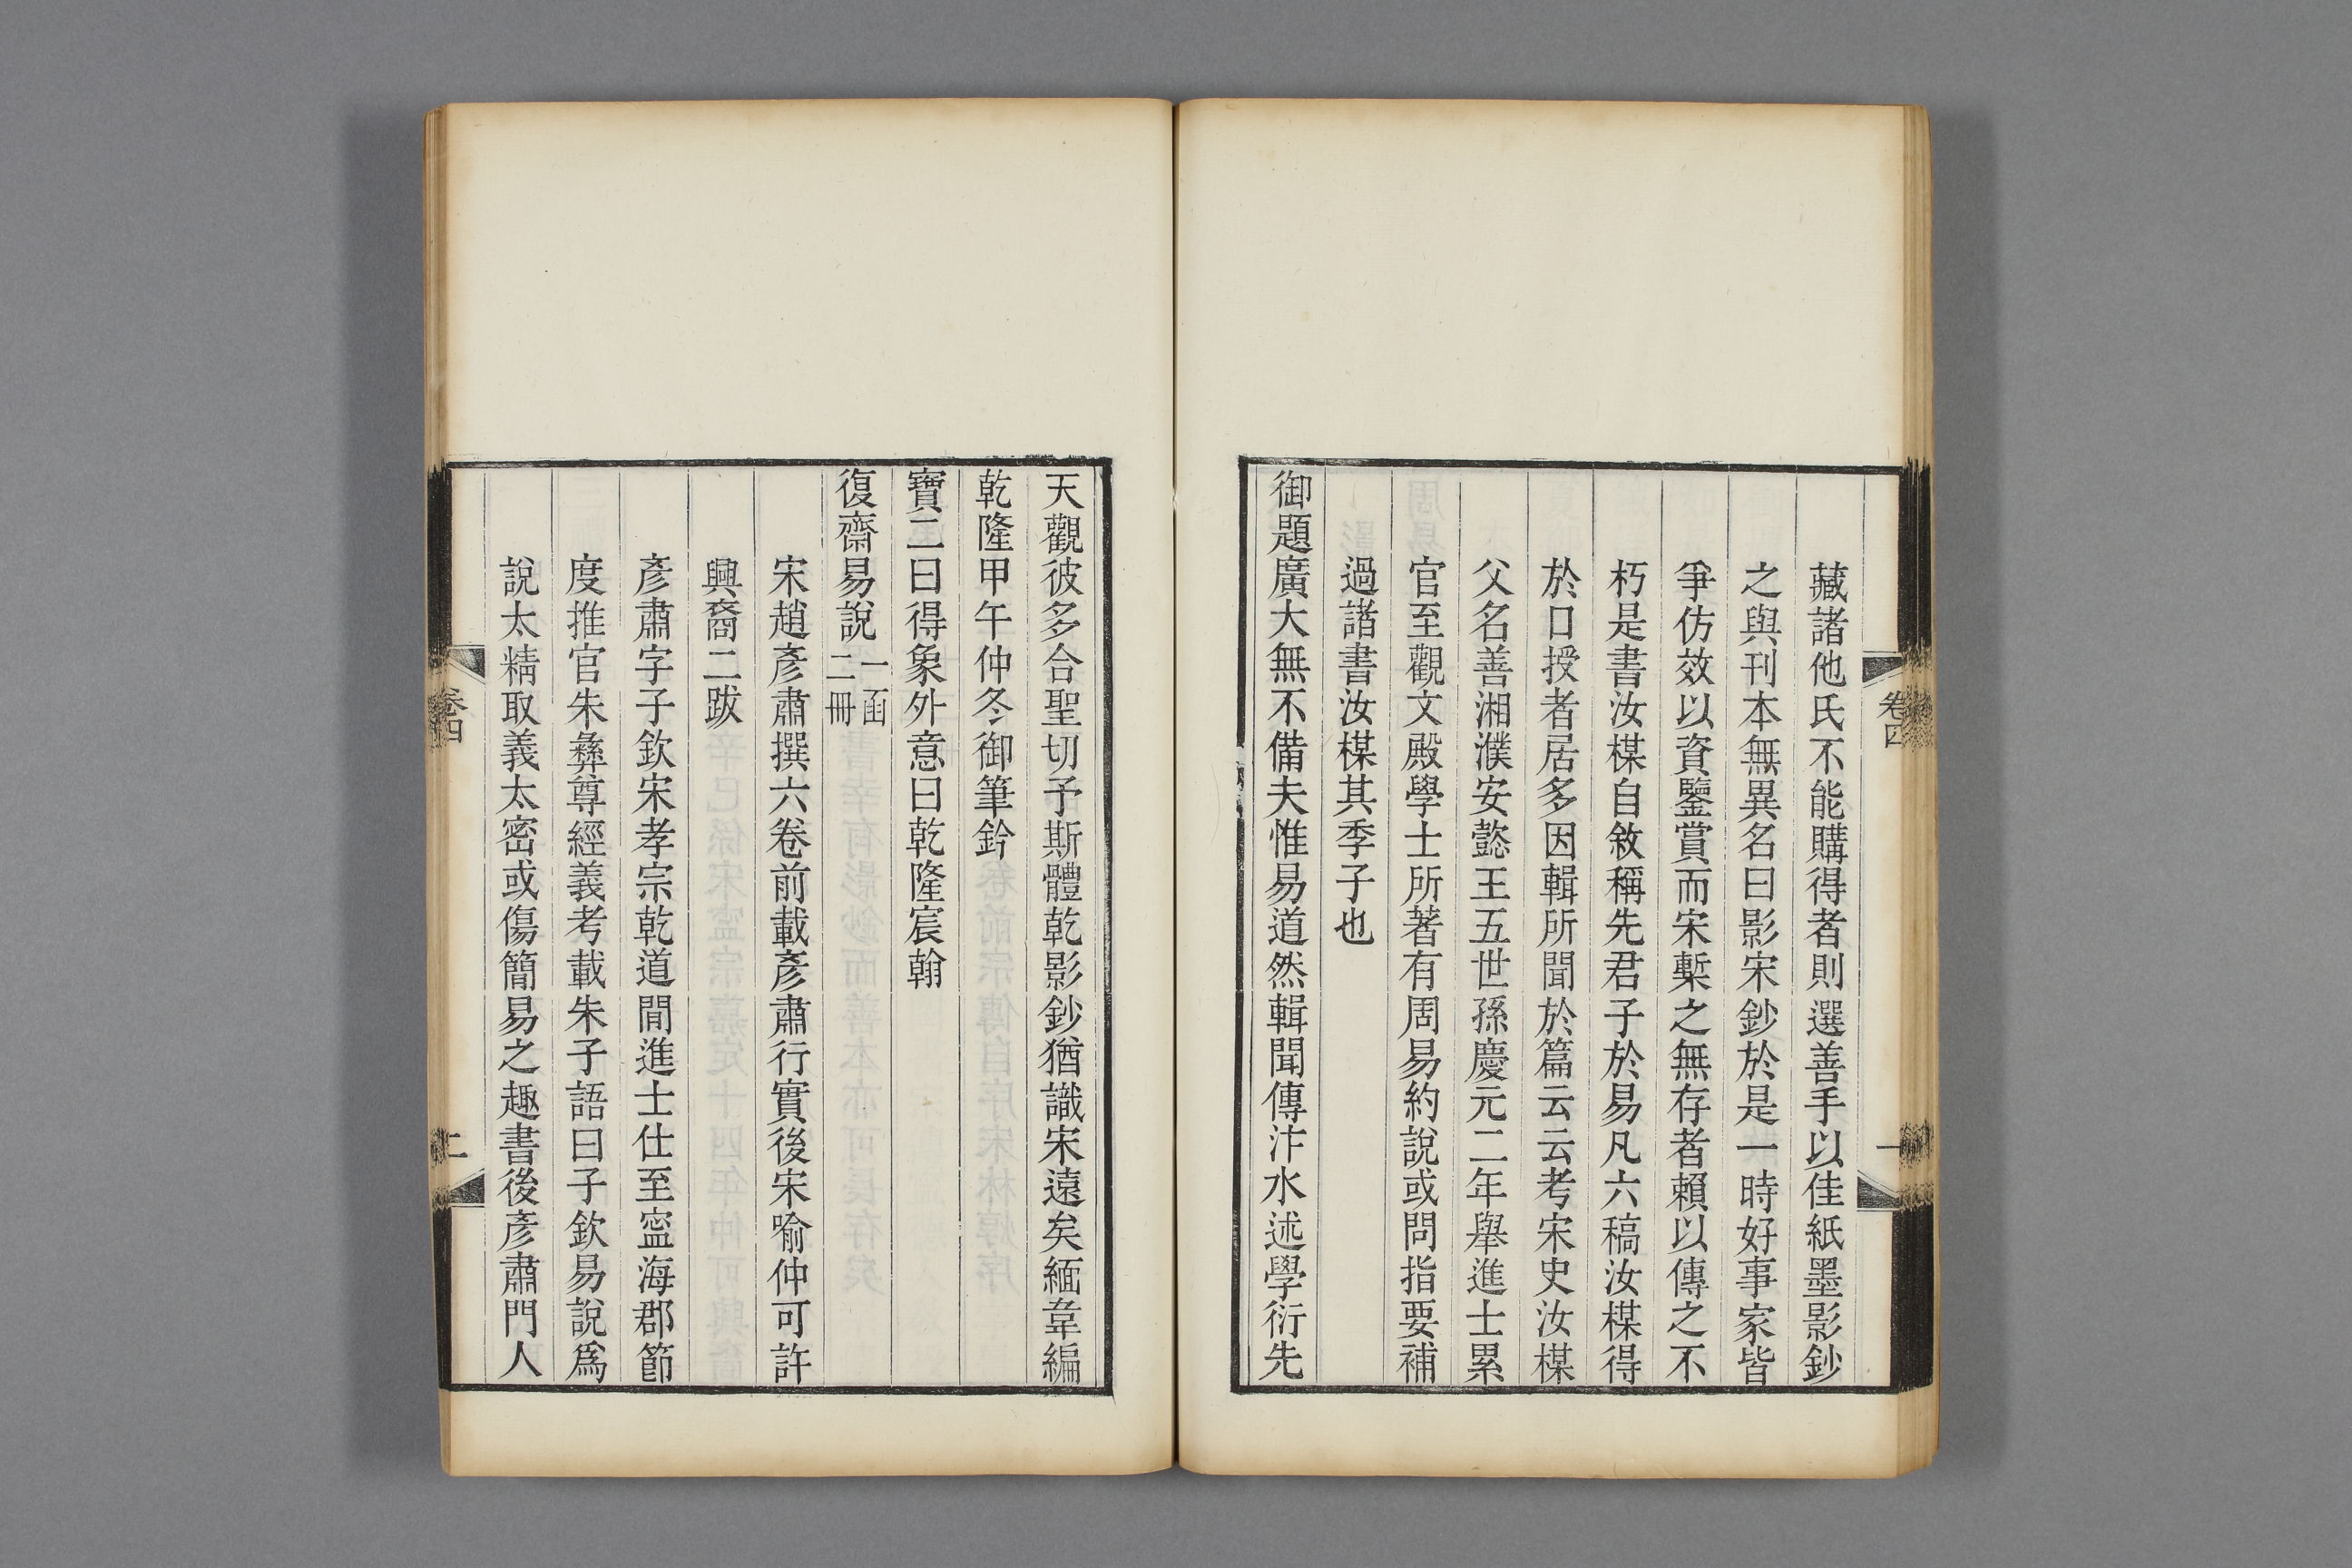 卷四
一
藏諸他氏不能購得者則選善手以佳紙墨影鈔
之與刊本無異名曰影宋鈔於是一時好事家皆
爭仿效以資鑒賞而宋槧之無存者賴以傳之不
朽是書汝楳自敘稱先君子於易凡六稿汝楳得
於口授者居多因輯所聞於篇云云考宋史汝楳
父名善湘濮安懿王五世孫慶元二年舉進士累
官至觀文殿學士所著有周易約說或問指要補
過諸書汝楳其季子也
御題廣大無不備夫惟易道然輯聞傳汴水述學衍先
天觀彼多合聖切予斯體乾影鈔猶識宋遠矣緬韋編
乾隆甲午仲冬御筆鈐
寶二曰得象外意曰乾隆宸翰
復齋易說一函二冊
宋趙彥肅撰六卷前載彥肅行實後宋喻仲可許
興裔二跋
彥肅字子欽宋孝宗乾道間進士仕至寍海郡節
度推官朱彝尊經義考載朱子語曰子欽易說為
說太精取義太密或傷簡易之趣書後彥肅門人
卷四
二